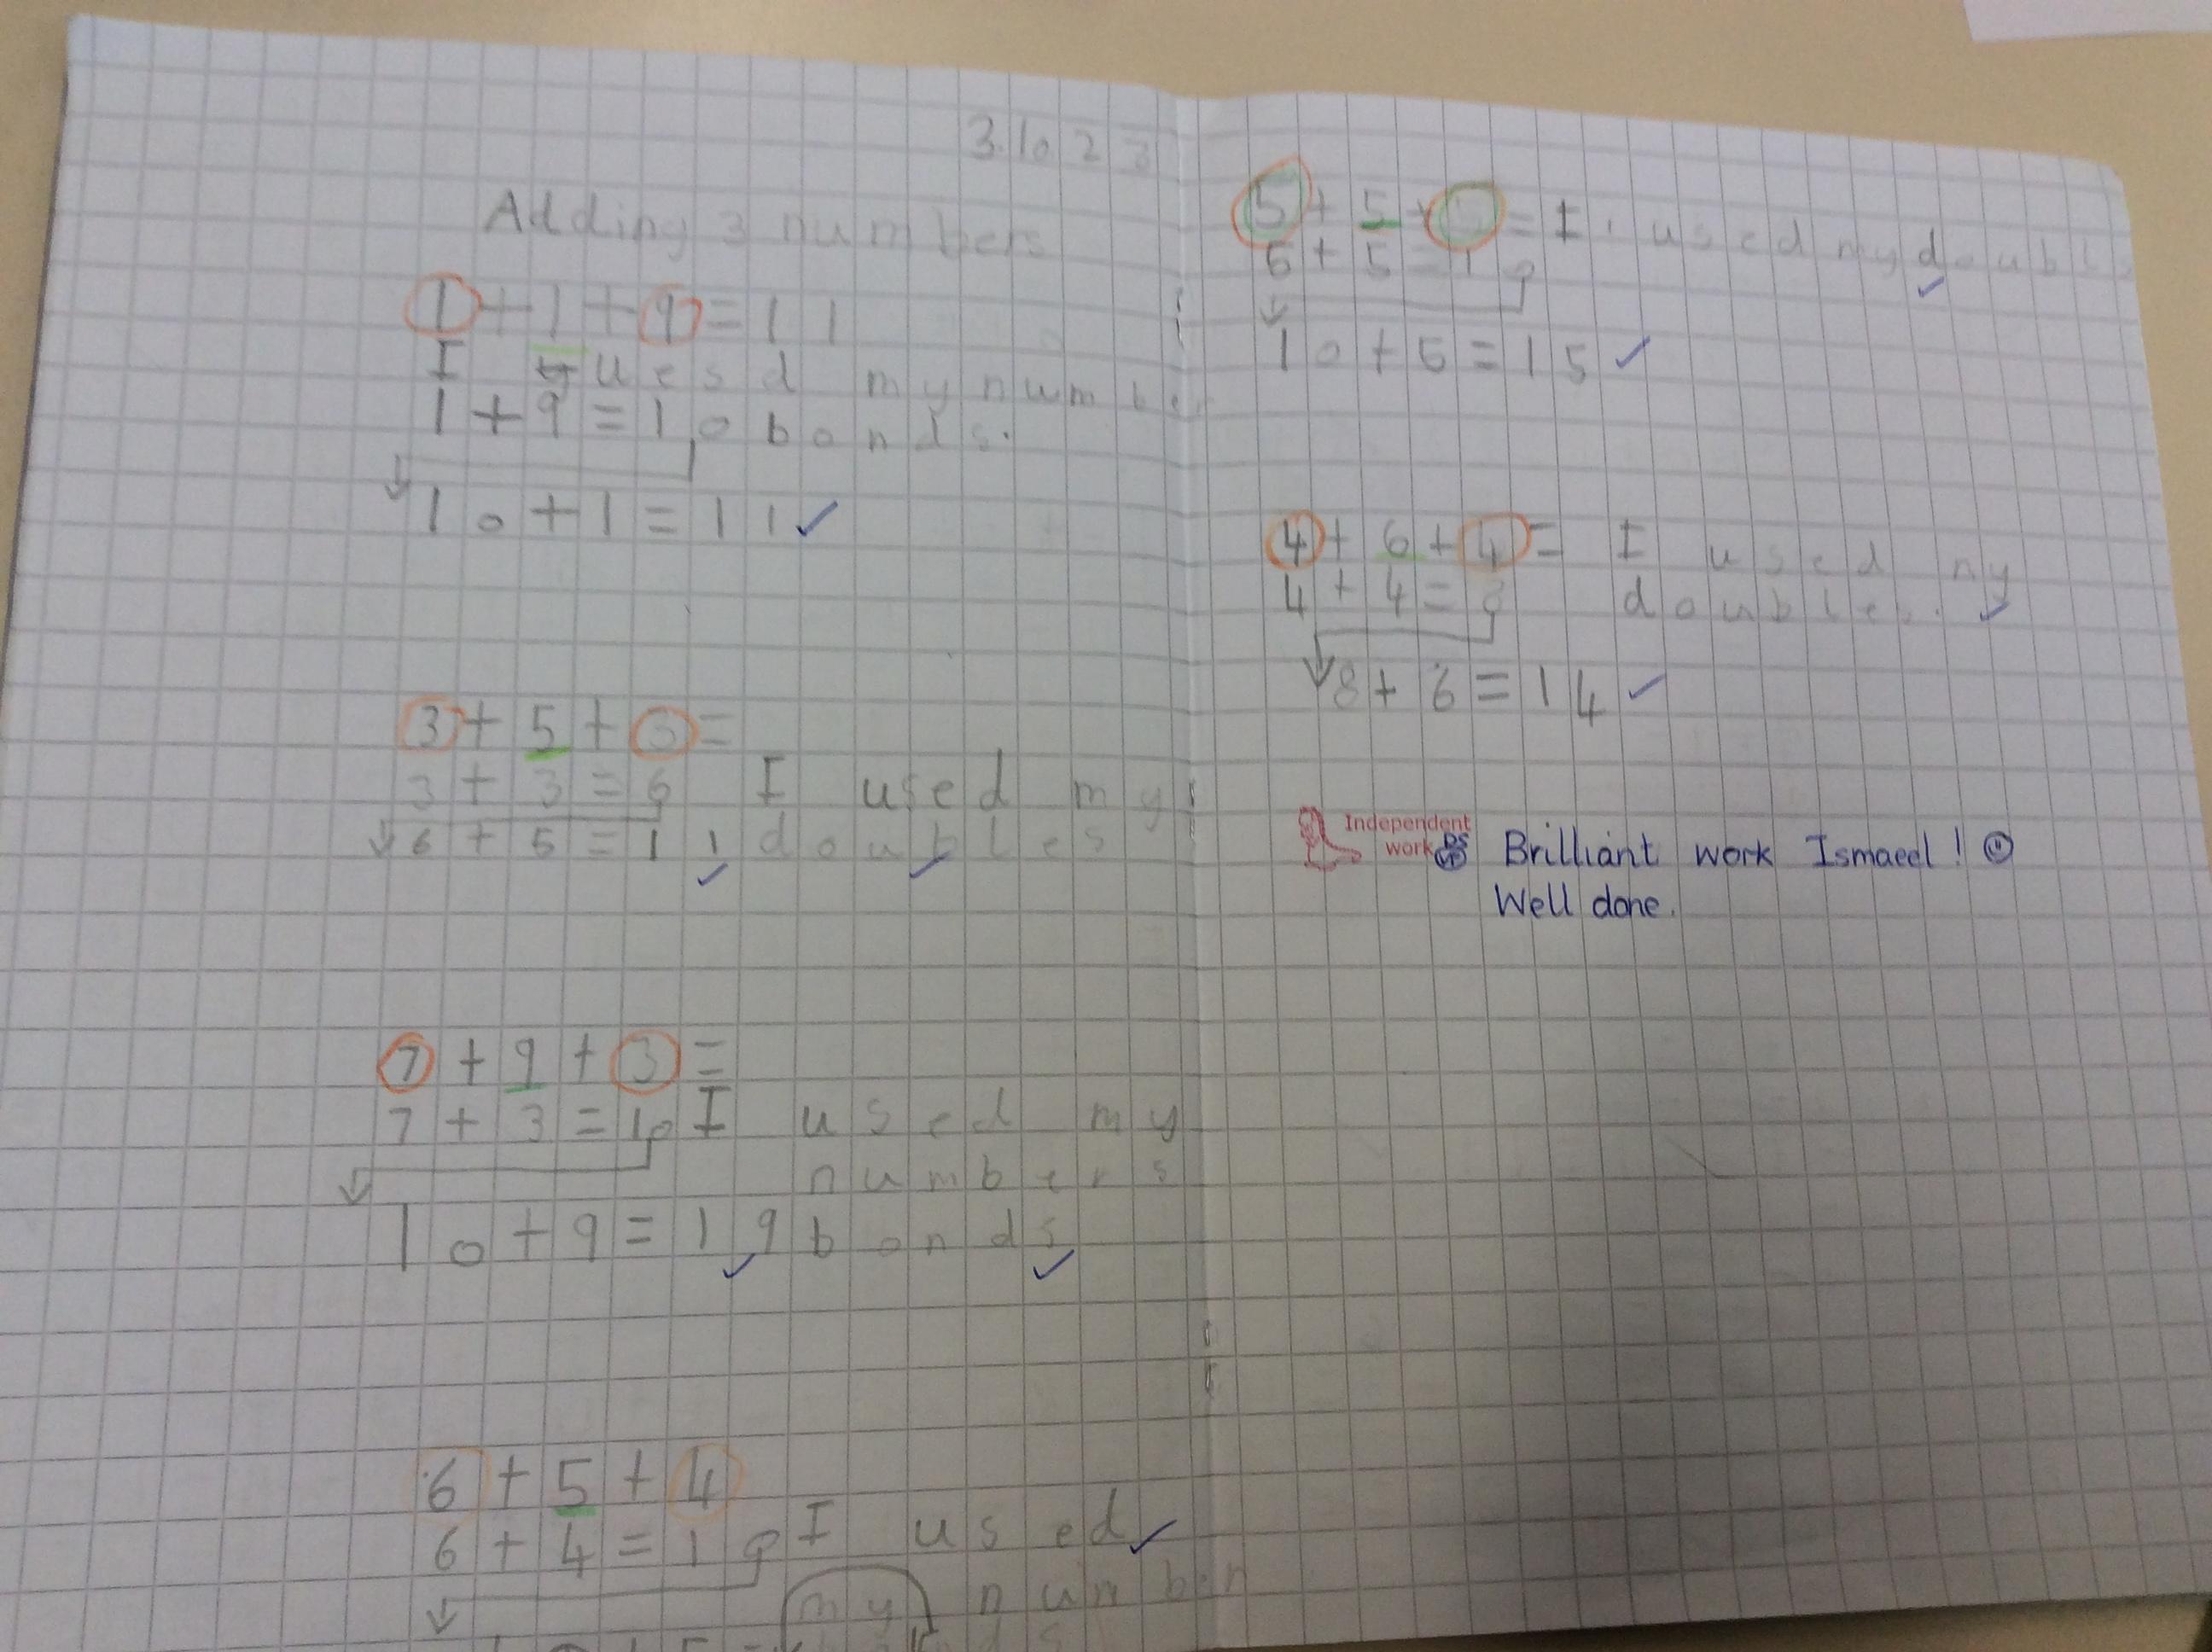 3.10 23
Adding 3 numbers
1 + 1 + 9 = 11
I uesd my number
1 + 9 = 10 bonds.
10 + 1 = 11 ✓
3 + 5 + 3 =
3 + 3 = 6 I used my
6 + 5 = 11 doubles
7 + 9 + 3 =
7 + 3 = 10 I used my
numbers
10 + 9 = 19 bonds
6 + 5 + 4
6 + 4 = 10 I used
my number
5 + 5 + 5 = I used my doubl
5 + 5 = 10
10 + 5 = 15 ✓
4 + 6 + 4 = I used my
4 + 4 = 8 double.
8 + 6 = 14 ✓
Independent
work
DS
Brilliant work Ismaeel! ☺
Well done.